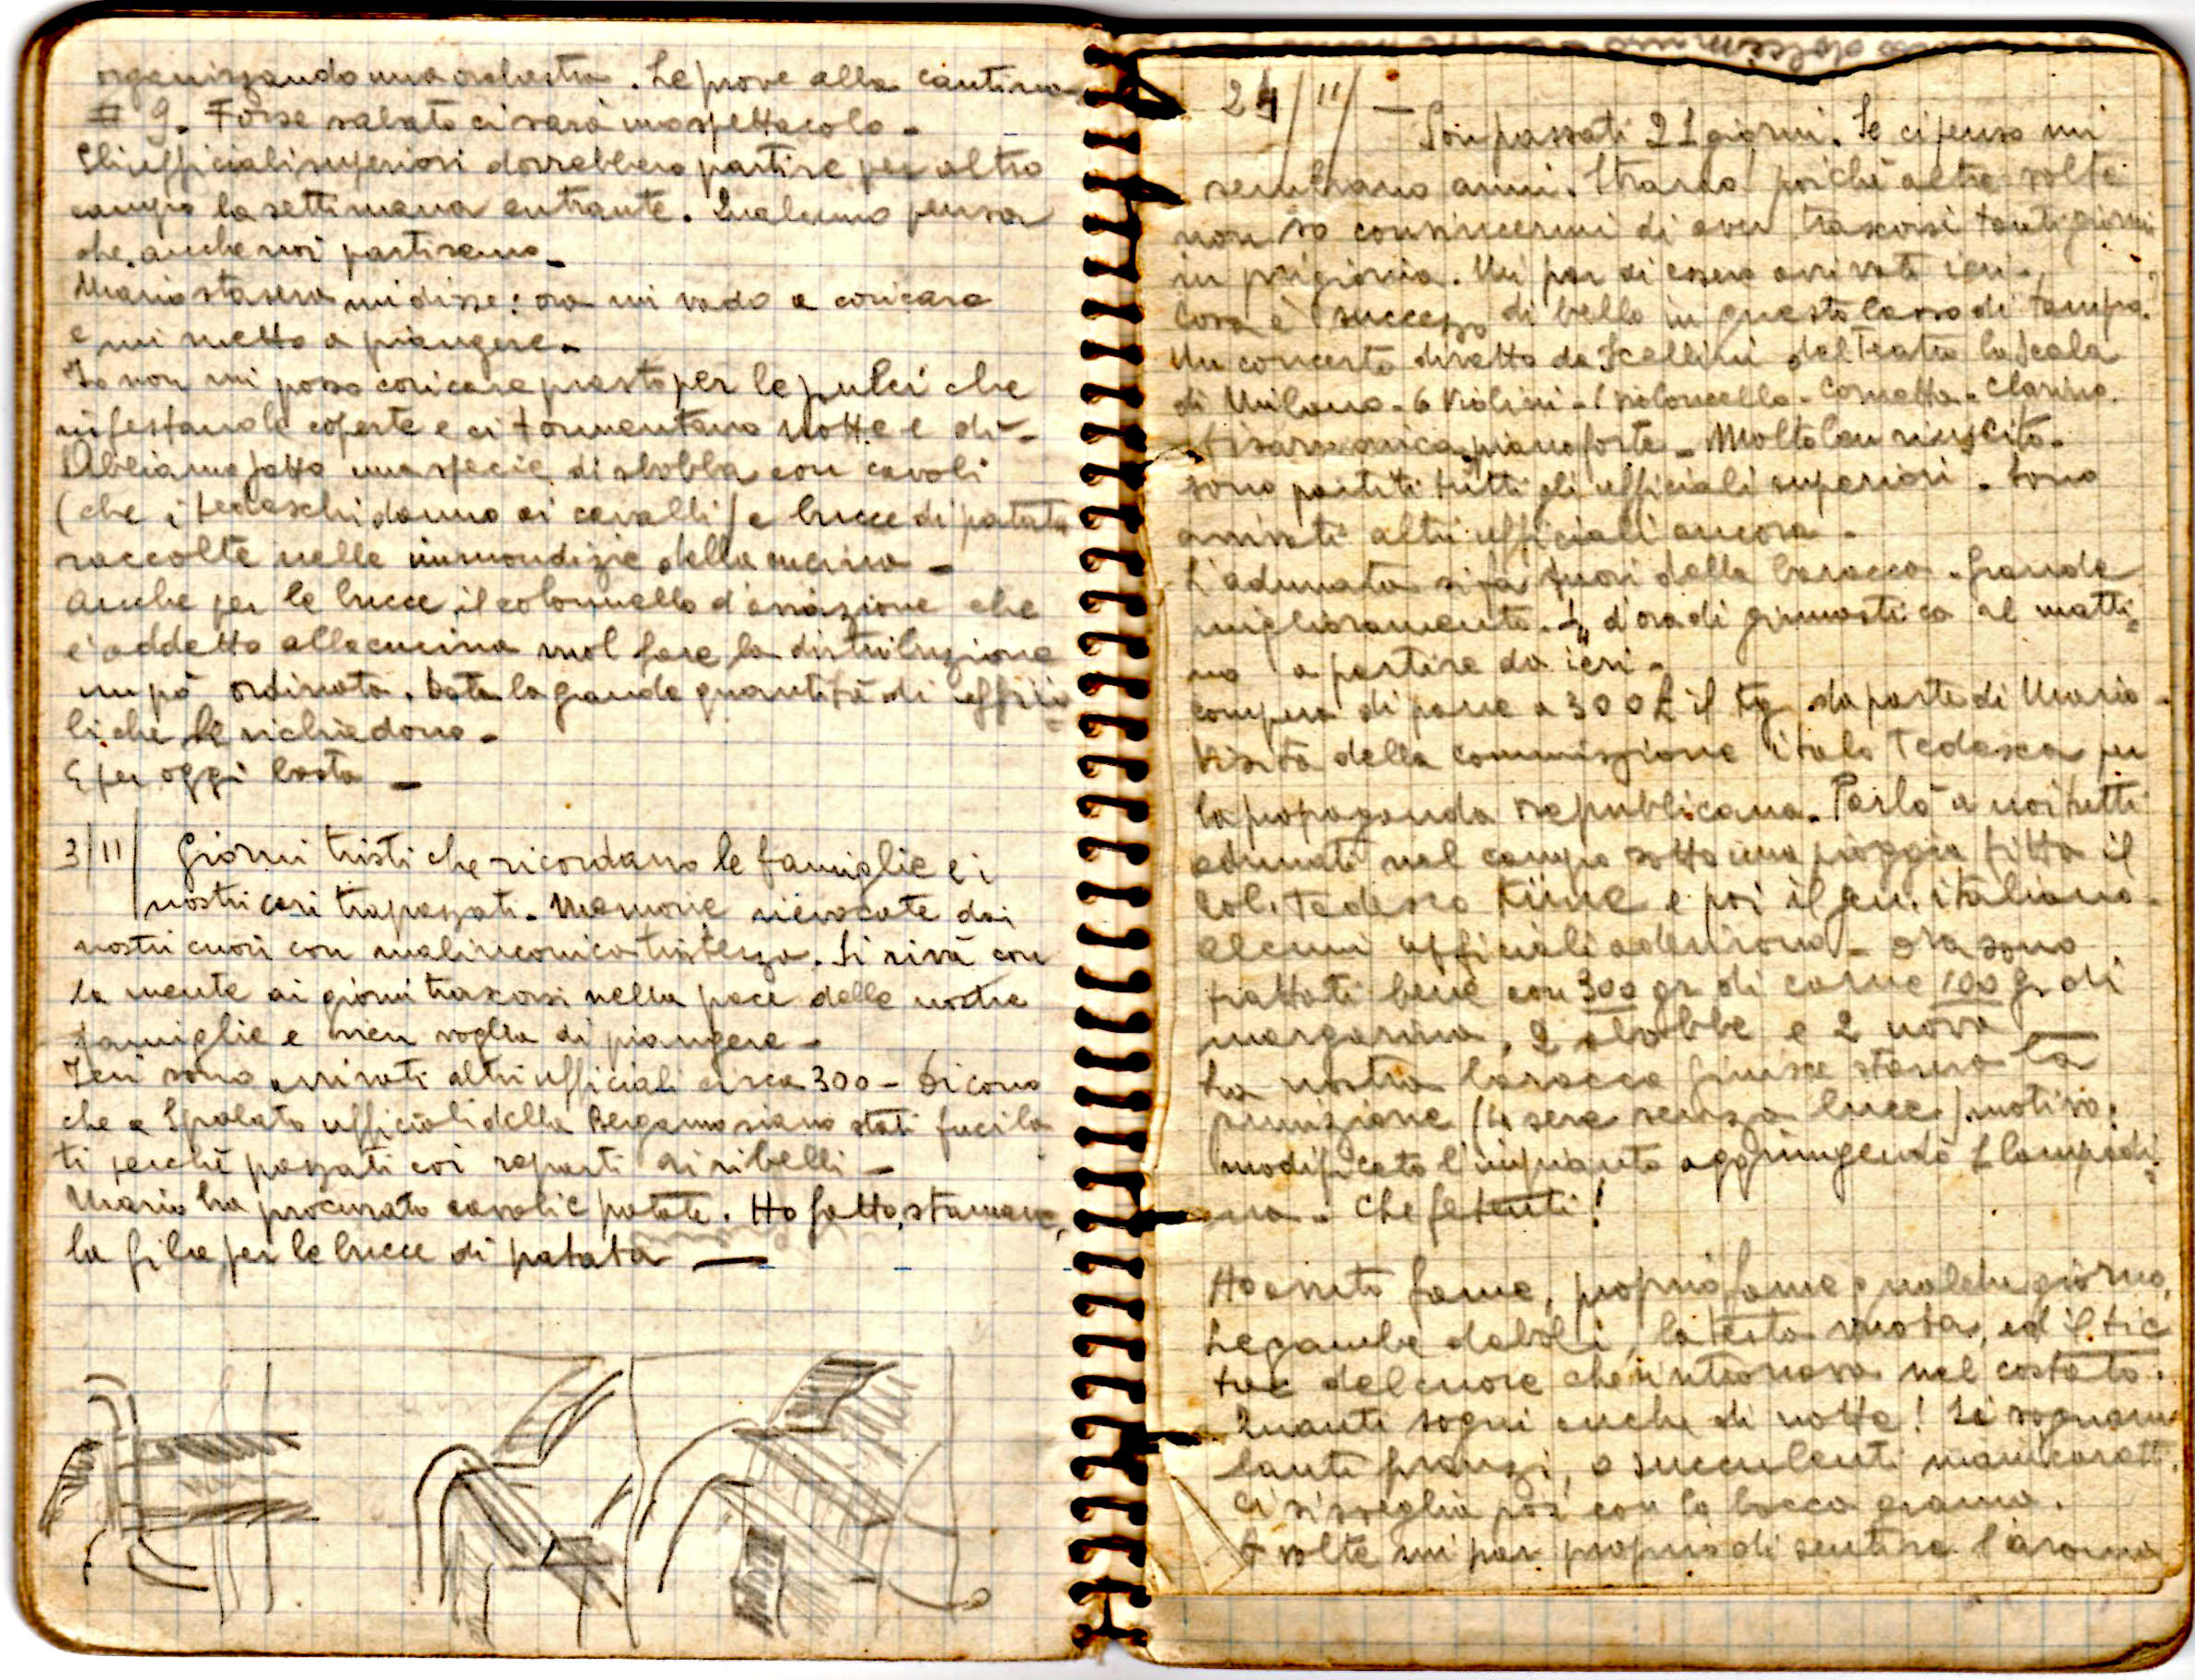 organizzando una orchestra. Le prove alla cantina
9. Forse sabato ci sarà uno spettacolo -
Gli ufficiali superiori dovrebbero partire per altro
campo la settimana entrante. Qualcuno pensa
che anche noi partiremo -
Mario stasera mi disse: ora mi vado a coricare
e mi metto a piangere -
Io non mi posso coricare presto per le pulci che
infestano le coperte e ci tormentano notte e dì -
Abbiamo fatto una specie di sbobba con cavoli
(che i tedeschi danno ai cavalli) e bucce di patata
raccolte nelle immondizie della cucina -
Anche per le bucce, il colonnello d'aviazione che
è addetto alla cucina vuol fare la distribuzione
un pò ordinata. Data la grande quantità di ufficia
li che le richiedono -
E per oggi basta -
3/11/ Giorni tristi che ricordano le famiglie e i
nostri cari trapassati. Memorie rievocate dai
nostri cuori con malinconica tristezza. Si rivà con
la mente ai giorni trascorsi nella pace delle nostre
famiglie e vien voglia di piangere -
Ieri sono arrivati altri ufficiali circa 300 - Dicono
che a Spalato ufficiali della Bergamo siano stati fucila
ti perché passati coi reparti ai ribelli -
Mario ha procurato cavoli e patate. Ho fatto, stamane,
la fila per le bucce di patata —
24/11/ - Son passati 21 giorni. Se ci penso mi
sembrano anni. Strano! poiché altre volte
non so convincermi di aver trascorsi tanti giorni
in prigionia. Mi par di essere arrivato ieri.
Cosa è successo di bello in questo lasso di tempo.
Un concerto diretto da Scellini del teatro la Scala
di Milano - 6 violini - 1 violoncello - Cornetta - Clarino.
Fisarmonica, pianoforte - Molto ben riuscito -
Sono partiti tutti gli ufficiali superiori. Sono
arrivati altri ufficiali ancora -
L'adunata si fa fuori della baracca. Grande
miglioramento. d'ora di ginnastica al matti=
no a partire da ieri -
Compera di pane a 300 £ il Kg da parte di Mario -
Visita della commissione italo tedesca per
la propaganda republicana. Parlò a noi tutti
adunati nel campo sotto una pioggia fitta il
Col. Tedesco e poi il gen. italiano.
Alcuni ufficiali aderirono - Ora sono
trattati bene con 300 gr di carne 100 gr. di
margarina, 2 sbobbe e 2 uova —
La nostra baracca finisce stasera la
punizione (4 sere senza luce) motivo:
modificato l'impianto aggiungendo 1 lampadi=
na. Che fetenti!
Ho avuto fame, proprio fame qualche giorno,
Le gambe deboli, la testa vuota, ed il tic
tac del cuore che rintronava nel costato.
Quanti sogni anche di notte! Si sognano
lauti pranzi, o succulenti manicaretti.
Ci si sveglia poi con la bocca grama.
A volte mi par proprio di sentire l'aroma